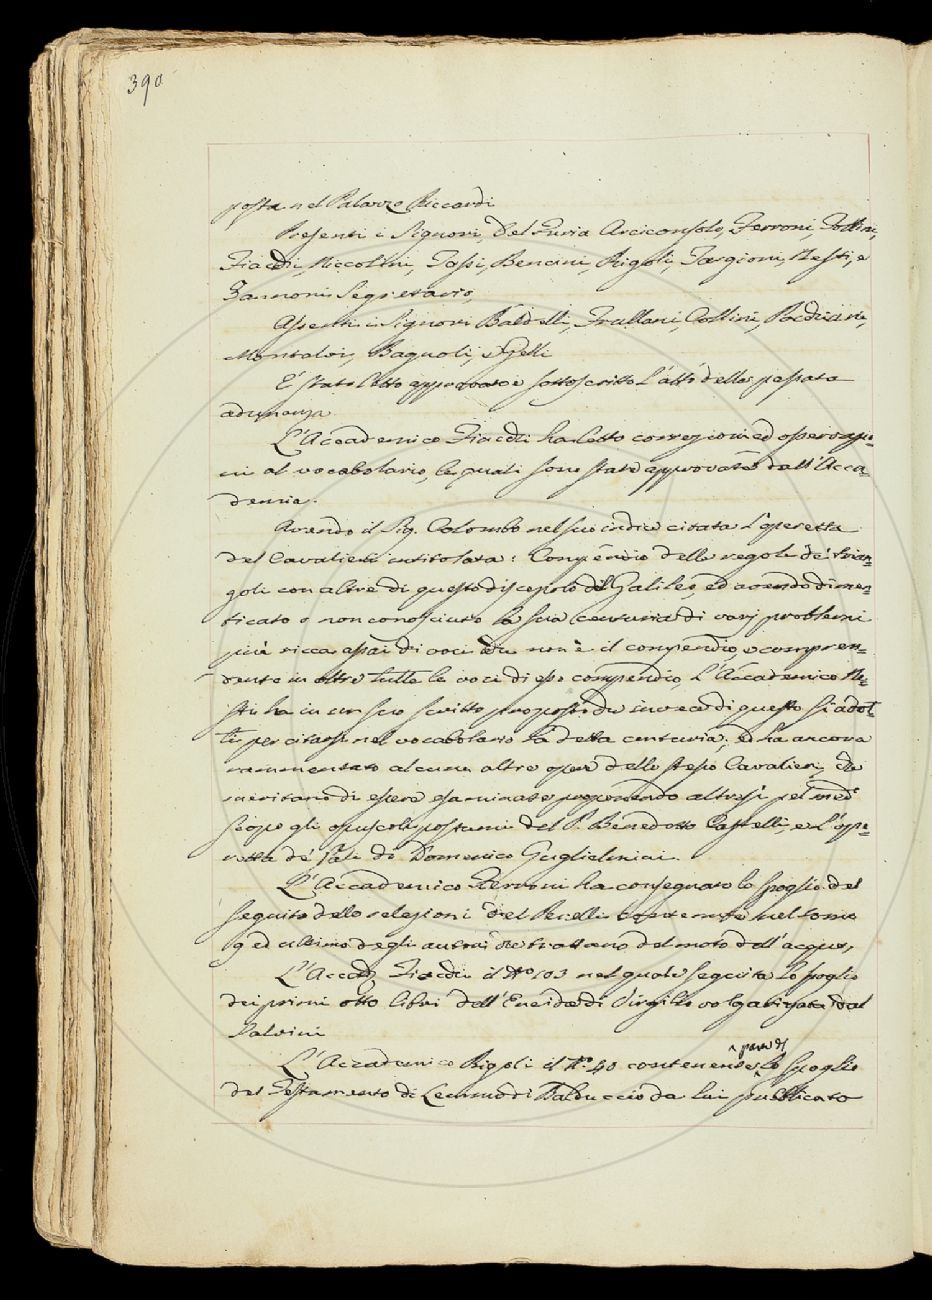 390
posta nel Palazzo Riccardi
Presenti i Signori, Del Furia Arciconsolo, Ferroni,
Fiacchi, Niccolini, Bencini, Rigoli, Targioni, Nesti, e
Zannoni Segretario,
Assenti i Signori Baldelli, Frullani, Collini,
Montalvi, Bagnoli, e Gelli
E' stato letto approvato e sottoscritto l'atto della passata
adunanza
L'Accademico Fiacchi ha letto correzioni ed osservazio=
ni al vocabolario, le quali sono state approvate dall'Acca=
demia.
Avendo il Sig. Colombo nel suo indice citata l'operetta
del Cavalieri intitolata: Compendio delle regole de' trian=
goli con altre di questo discepolo del Galileo, ed avendo dimen=
ticato o non conosciuto la sua centuria di varj problemi
più ricca assai di voci che non è il compendio, e compren=
dente in oltre tutte le voci di esso compendio, L'Accademico Ne=
sti ha in un suo scritto proposto che invece di questo si adot=
ti per citarsi nel vocabolario la detta centuria, ed ha ancora
rammentato alcune altre opere dello stesso Cavalieri, che
meritano di essere esaminate proponendo altresì pel med.
scopo gli opuscoli postumi del P. Benedetto Castelli, e l'ope=
retta de' sali di Domenico Guglielmini.
L'Accademico Ferroni ha consegnato lo spoglio del
seguito delle relazioni del Perelli contenute nel tomo
9 ed ultimo degli autori che trattano del moto dell'acque,
L'Accad. Fiacchi il N.o 103 nel quale seguita lo spoglio
dei primi otto libri dell'Eneide di Virgilio volgarizzata dal
Salvini
L'Accademico Rigoli il N.o 40 contenente ^parte di^ lo spoglio
del Testamento di Lemmo di Balduccio da lui pubblicato